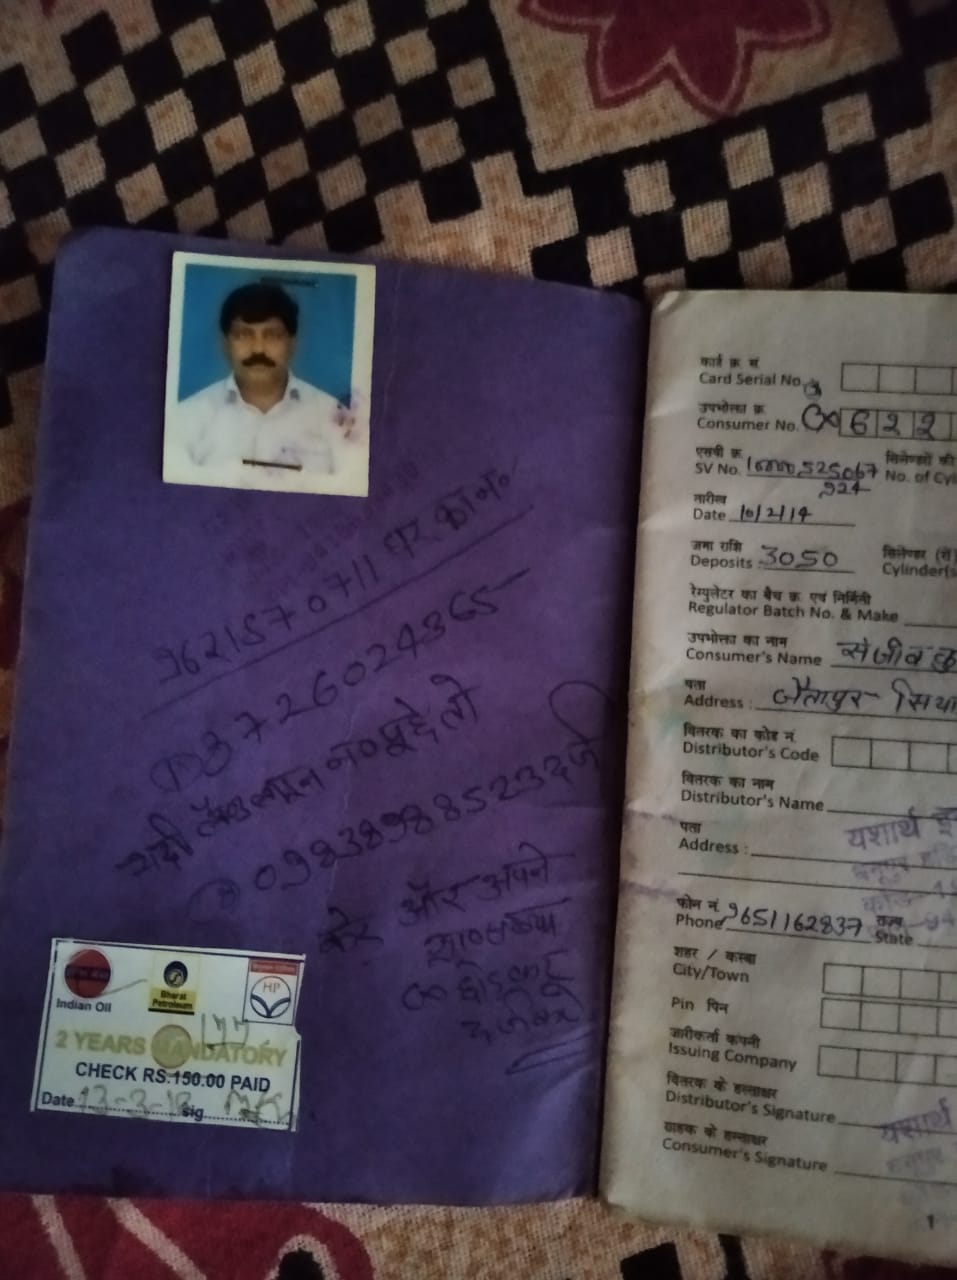 9621570711 घर का न०
8726024365
यदी लैण्डलाइन न० पूछे तो
09838988523
करे और अपने
छोड़कर
दर्ज करे
Indian Oil
Bharat Petroleum
HP
177
2 YEARS MANDATORY
CHECK RS.150.00 PAID
Date 12-3-18 sig
कार्ड क्र सं.
Card Serial No.
उपभोक्ता क्र.
Consumer No. 622
एसवी क्र.
SV No. 525067
924
सिलेण्डरों की
No. of Cyl
तारीख
Date 10/2/14
जमा राशि
Deposits : 3050
सिलेण्डर (रों)
Cylinder(s
रेग्युलेटर का बैच क्र. एवं निर्मिती
Regulator Batch No. & Make
उपभोक्ता का नाम
Consumer's Name संजीव कु
पता
Address : जैतापुर सिया
वितरक का कोड नं.
Distributor's Code
वितरक का नाम
Distributor's Name
पता
Address :
यशार्थ
फोन नं.
Phone 9651162837
राज्य
State
शहर / कस्बा
City/Town
Pin पिन
जारीकर्ता कंपनी
Issuing Company
वितरक के हस्ताक्षर
Distributor's Signature
यशार्थ
ग्राहक के हस्ताक्षर
Consumer's Signature
1